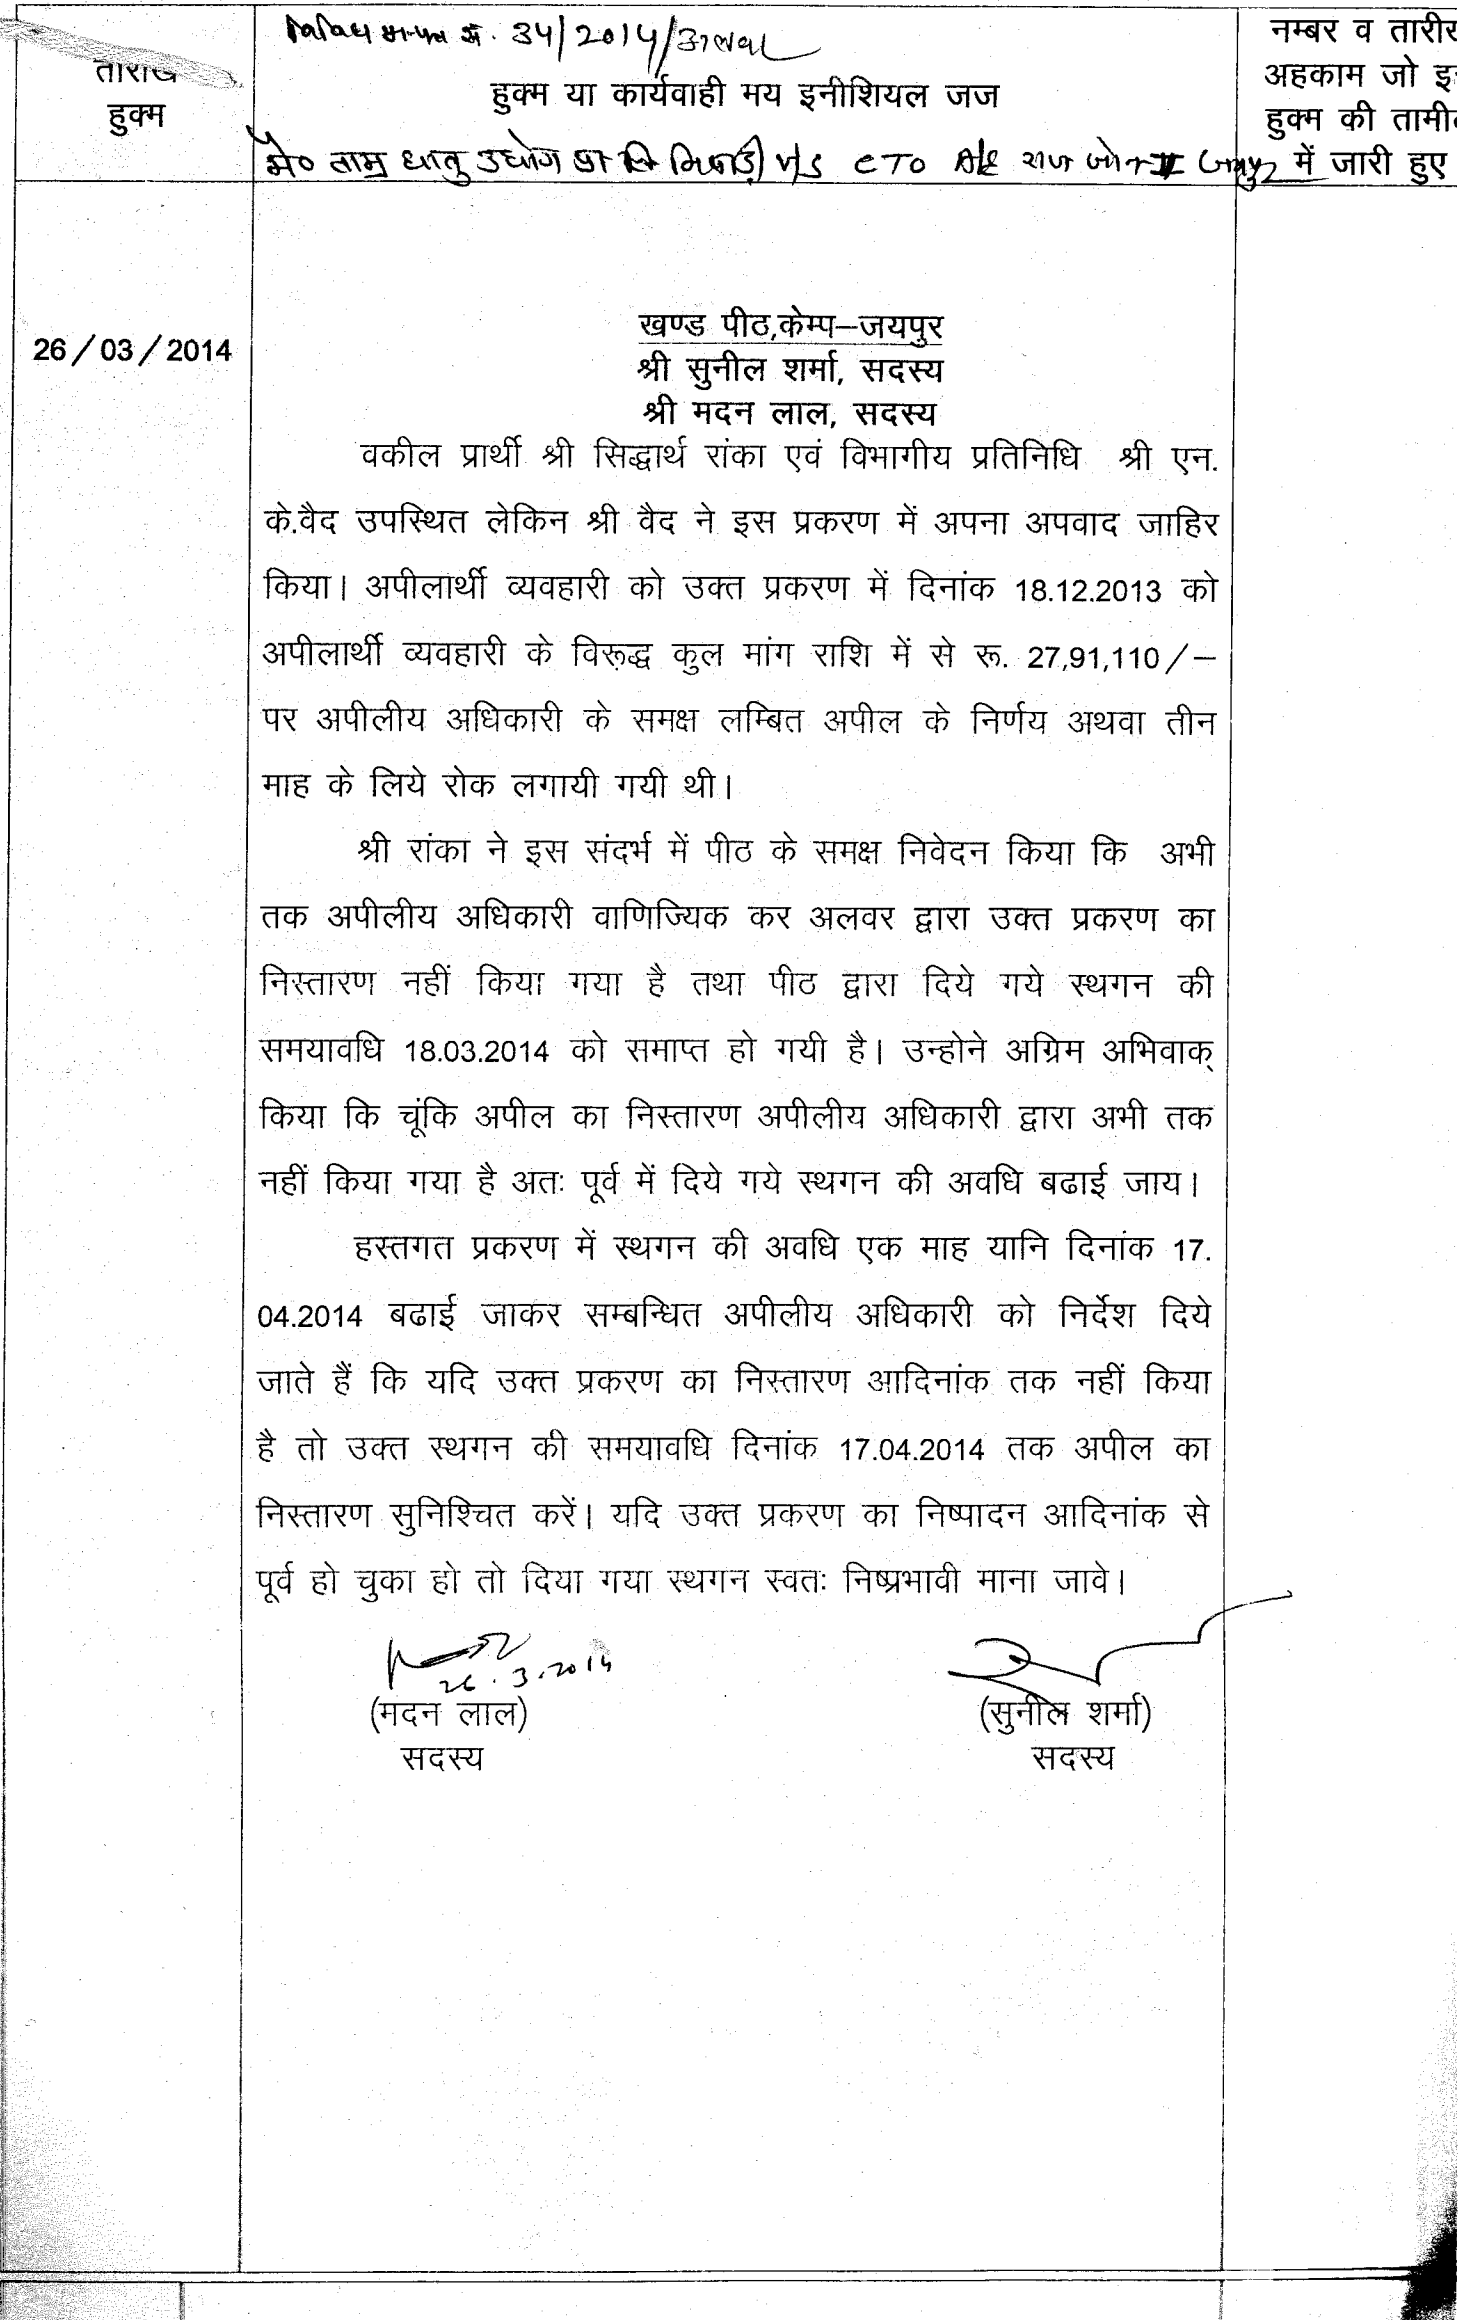 34/2014/अलवर
तारीख
हुक्म
हुक्म या कार्यवाही मय इनीशियल जज
नम्बर व तारीर
अहकाम जो इ
हुक्म की तामी
में जारी हुए
मै० ताम्र धातु उद्योग प्रा लि V/S CTO A/E राज जोन II जयपुर
26/03/2014
खण्ड पीठ,केम्प–जयपुर
श्री सुनील शर्मा, सदस्य
श्री मदन लाल, सदस्य
वकील प्रार्थी श्री सिद्धार्थ रांका एवं विभागीय प्रतिनिधि श्री एन.
के.वैद उपस्थित लेकिन श्री वैद ने इस प्रकरण में अपना अपवाद जाहिर
किया। अपीलार्थी व्यवहारी को उक्त प्रकरण में दिनांक 18.12.2013 को
अपीलार्थी व्यवहारी के विरूद्ध कुल मांग राशि में से रू. 27,91,110/–
पर अपीलीय अधिकारी के समक्ष लम्बित अपील के निर्णय अथवा तीन
माह के लिये रोक लगायी गयी थी।
श्री रांका ने इस संदर्भ में पीठ के समक्ष निवेदन किया कि अभी
तक अपीलीय अधिकारी वाणिज्यिक कर अलवर द्वारा उक्त प्रकरण का
निस्तारण नहीं किया गया है तथा पीठ द्वारा दिये गये स्थगन की
समयावधि 18.03.2014 को समाप्त हो गयी है। उन्होने अग्रिम अभिवाक्
किया कि चूंकि अपील का निस्तारण अपीलीय अधिकारी द्वारा अभी तक
नहीं किया गया है अतः पूर्व में दिये गये स्थगन की अवधि बढाई जाय।
हस्तगत प्रकरण में स्थगन की अवधि एक माह यानि दिनांक 17.
04.2014 बढाई जाकर सम्बन्धित अपीलीय अधिकारी को निर्देश दिये
जाते हैं कि यदि उक्त प्रकरण का निस्तारण आदिनांक तक नहीं किया
है तो उक्त स्थगन की समयावधि दिनांक 17.04.2014 तक अपील का
निस्तारण सुनिश्चित करें। यदि उक्त प्रकरण का निष्पादन आदिनांक से
पूर्व हो चुका हो तो दिया गया स्थगन स्वतः निष्प्रभावी माना जावे।
26.3.2014
(मदन लाल)
सदस्य
(सुनील शर्मा)
सदस्य